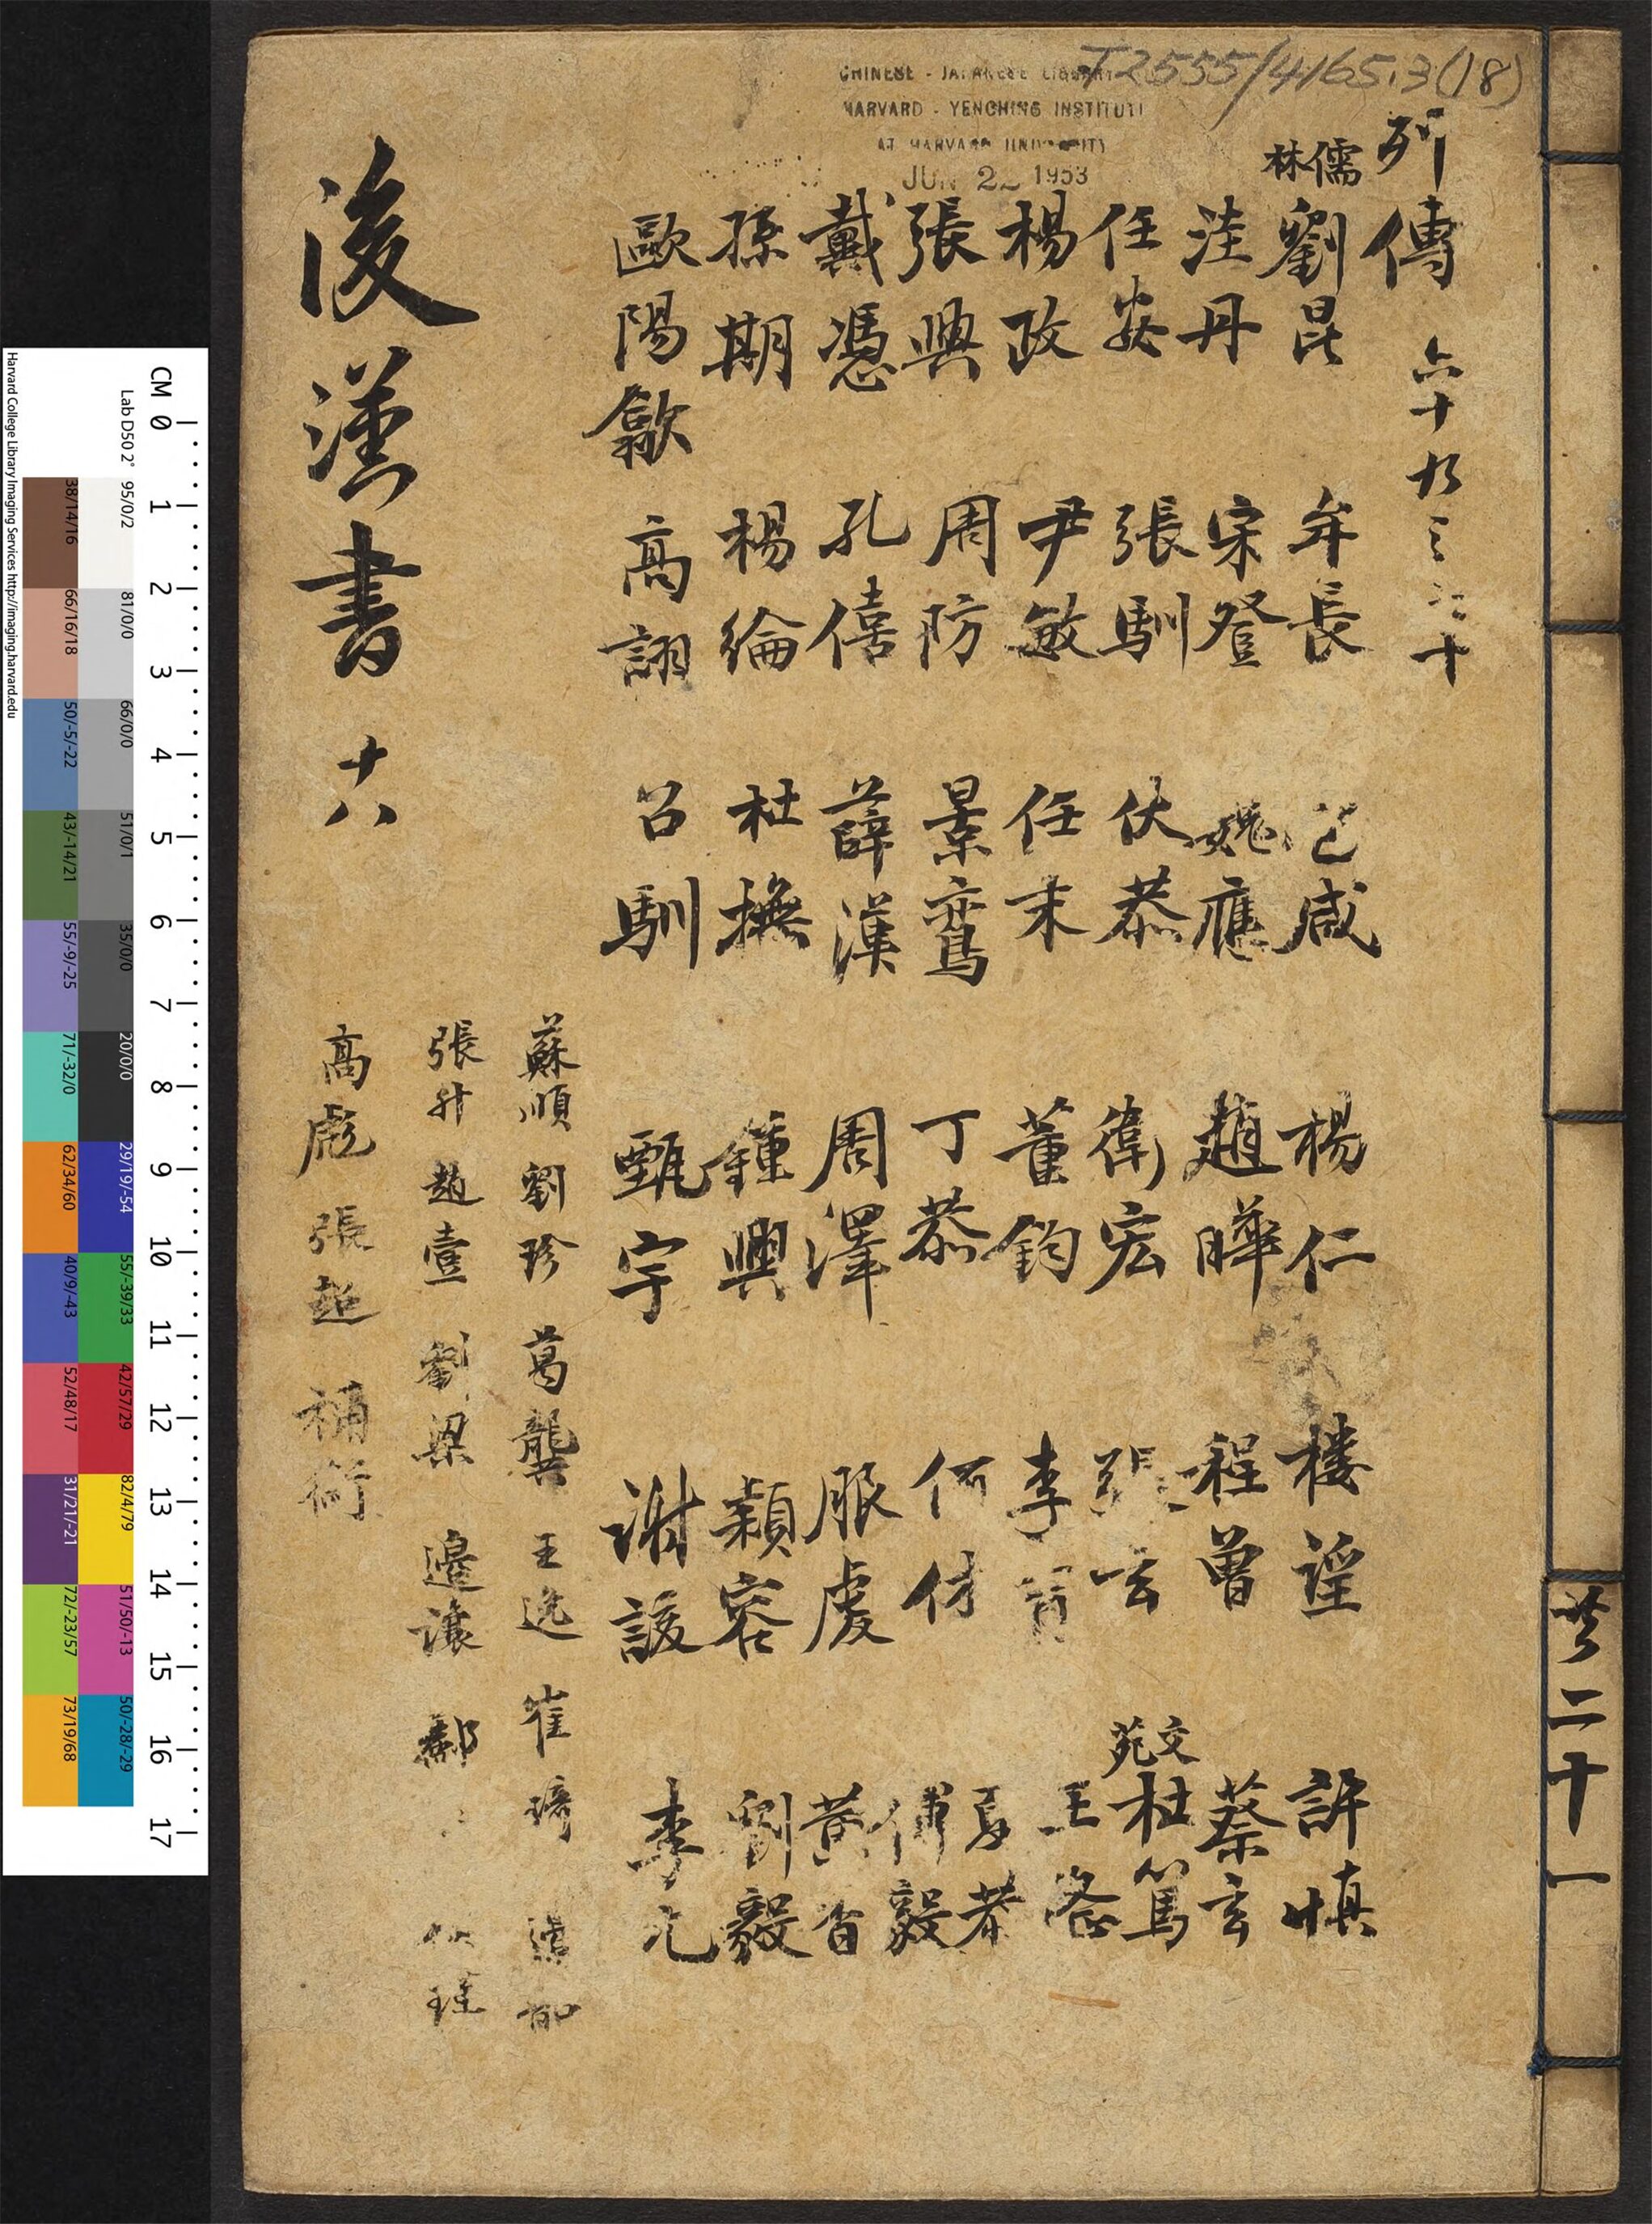 T2555/4165.3(18)
CHINESE - JAPANESE LIBRARY
HARVARD - YENCHING INSTITUTE
AT HARVARD UNIVERSITY
JUN 22 1953
列傳 六十九之七十
儒林
劉昆 牟長 包咸 楊仁 樓望 許慎
洼丹 宋登 魏應 趙曄 程曾 蔡玄
任安 張馴 伏恭 衛宏 張玄
文苑
杜篤
楊政 尹敏 任末 董鈞 李育 王隆
夏恭
張興 周防 景鸞 丁恭 何休 傅毅
戴憑 孔僖 薛漢 周澤 服虔 黃香
孫期 楊倫 杜撫 鍾興 穎容 劉毅
歐陽歙 高詡 召馴 甄宇 謝該 李尤
蘇順 劉珍 葛龔 王逸 崔琦 邊韶
張升 趙壹 劉梁 邊讓 酈 侯瑾
高彪 張超 禰衡
後漢書 十八
共二十一
CM 0 1 2 3 4 5 6 7 8 9 10 11 12 13 14 15 16 17
Lab D50 2°
95/0/2
81/0/0
66/0/0
51/0/1
35/0/0
20/0/0
29/19/-54
55/-39/33
42/57/29
82/4/79
51/50/-13
50/-28/-29
38/14/16
66/16/18
50/-5/-22
43/-14/21
55/-9/-25
71/-32/0
62/34/60
40/9/-43
52/48/17
31/21/-21
72/-23/57
73/19/68
Harvard College Library Imaging Services http://imaging.harvard.edu